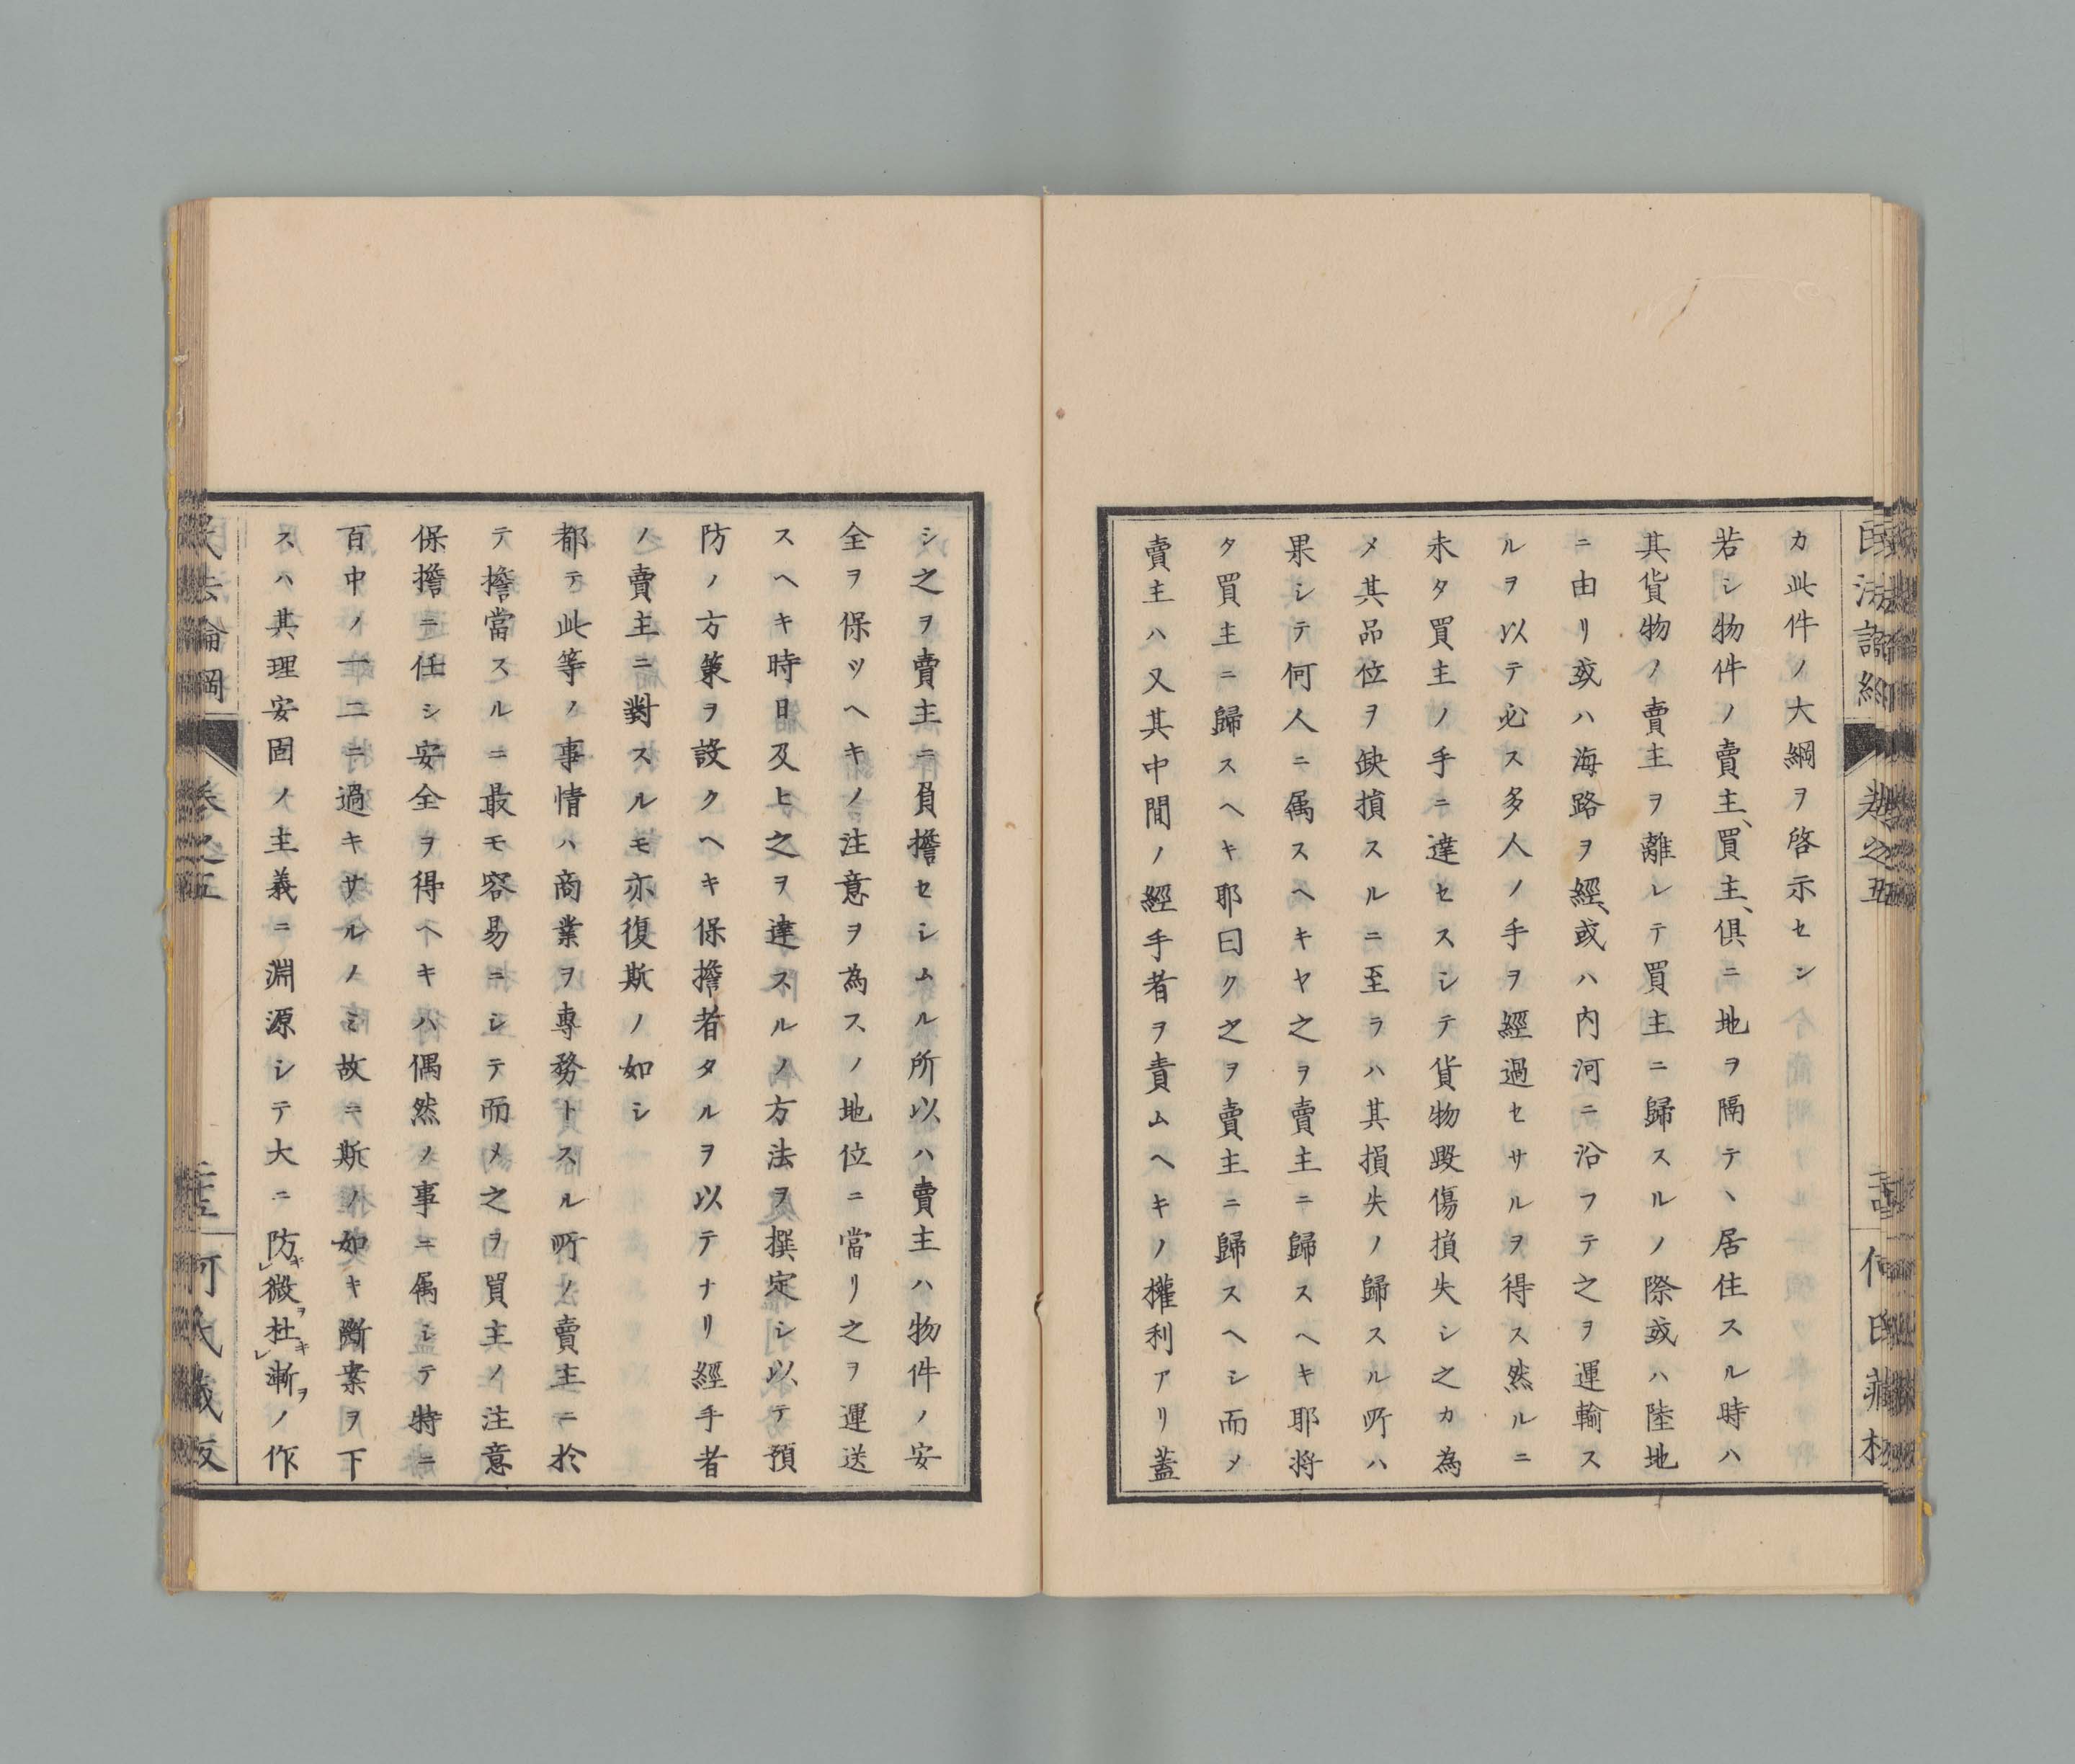 カ此件ノ大綱ヲ啓示セン
若シ物件ノ賣主、買主、俱ニ地ヲ隔テヽ居住スル時ハ
其貨物ノ賣主ヲ離レテ買主ニ歸スルノ際或ハ陸地
ニ由リ或ハ海路ヲ經、或ハ内河ニ沿フテ之ヲ運輸ス
ルヲ以テ必ス多人ノ手ヲ經過セサルヲ得ス然ルニ
未タ買主ノ手ニ達セスシテ貨物毀傷損失シ之カ為
メ其品位ヲ缺損スルニ至ラハ其損失ノ歸スル所ハ
果シテ何人ニ属スヘキヤ之ヲ賣主ニ歸スヘキ耶將
タ買主ニ歸スヘキ耶曰ク之ヲ賣主ニ歸スヘシ而メ
賣主ハ又其中間ノ經手者ヲ責ムヘキノ權利アリ蓋
シ之ヲ賣主ニ負擔セシムル所以ハ賣主ハ物件ノ安
全ヲ保ツヘキノ注意ヲ為スノ地位ニ當リ之ヲ運送
スヘキ時日及ヒ之ヲ達スルノ方法ヲ撰定シ以テ預
防ノ方策ヲ設クヘキ保擔者タルヲ以テナリ經手者
ノ賣主ニ對スルモ亦復斯ノ如シ
都テ此等ノ事情ハ商業ヲ專務トスル所ノ賣主ニ於
テ擔當スルニ最モ容易ニシテ而メ之ヲ買主ノ注意
保擔ニ任シ安全ヲ得ヘキハ偶然ノ事ニ属シテ特ニ
百中ノ一二ニ過キサルノミ故ニ斯ノ如キ斷案ヲ下
スハ其理安固ノ主義ニ淵源シテ大ニ防キ微ヲ杜キ漸ヲノ作
民法論綱
卷之五
何氏藏板